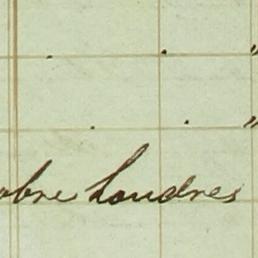 . . "
. . "
obre Londres